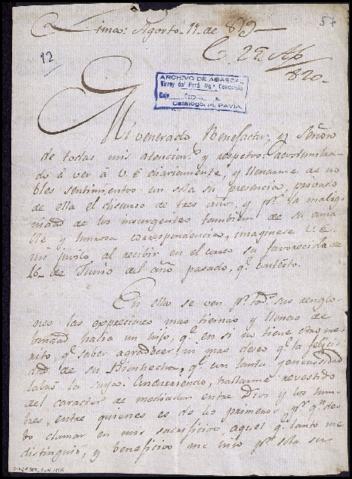 Lima Agosto 11 de 819
C. 22 Ab
820
12
ARCHIVO DE ABASCAL
Virrey del Perú, Mq. Concordia
Catálogo, H. PAVIA
Mi venerado Benefactor, y Señor
de todas mis atenciones y respetos: acostumbra-
do á ver á V. E. diariamente, y llenarme de no
bles sentimientos con sola su presencia, privado
de ella el discurso de tres años, y pr. la malig-
nidad de los insurgentes tambien de su ama
ble y honrosa correspondencia, imaginese V. E.
mi jubilo al recibir en el correo su favorecida de
16 de Junio del año pasado, qe. contesto.
En ella se ven pr. todos sus renglo
nes las expresiones mas tiernas y llenas de
bondad hacia un hijo, qe. en si no tiene otro me-
rito, qe. saber agradecer, ni mas deseo, qe. la felici-
dad de su Bienhechor, qe. con tanta generosidad
labró la suya. Enhorabuena, hallarme revestido
del caracter de mediador entre Dios y los hom
bres, entre quienes es de los primeros pr. qe. de-
bo clamar en mis sacrificios aquel qe. tanto me
distinguió, y beneficio me hizo pr. sola su